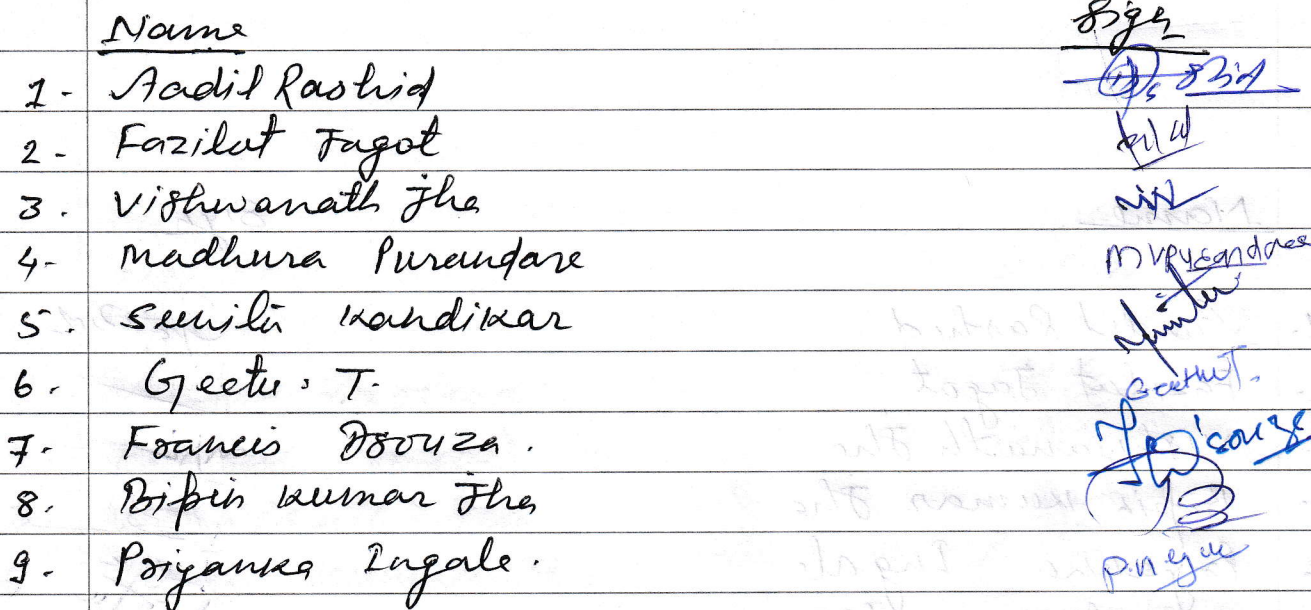 Name Sign
1- Aadil Rashid
2- Fazilat Jagot
3. Vishwanath Jha
4- Madhura Purandare MVPurandare
5. Sunita Kandikar
6. Geetu. T. GeethuT.
7. Francis Dsouza. D'souza
8. Bipin Kumar Jha
9. Priyanka Ingale.